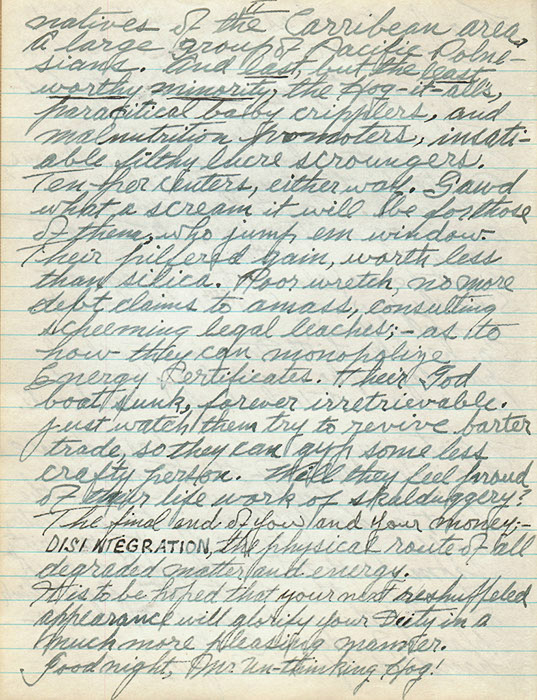 natives of the Carribean area,
A large group of Pacific Polne-
sians. And last, but the least
worthy minority, the Hog-it-alls,
paracitical baby cripplers, and
malnutrition promoters, insati-
able filthy lucre scroungers.
Ten-per centers, either way. Gawd
what a scream it will be for those
of them, who jump em window.
Their pilfered gain, worth less
than silica. Poor wretch, no more
debt claims to amass, consulting
screeming legal leaches;- as to
how they can monopolize
Energy Certificates. Their God
boat sunk, forever irretrievable.
Just watch them try to revive barter
trade, so they can gyp some less
crafty person. Will they feel proud
of their life work of skulduggery?
The final end of you and your money;-
DISINTEGRATION, the physical route of all
degraded matter and energy.
It is to be hoped that your next reshuffeled
appearance will glorify your Deity in a
much more pleasing manner.
Good night, Mr. Un-thinking Hog!